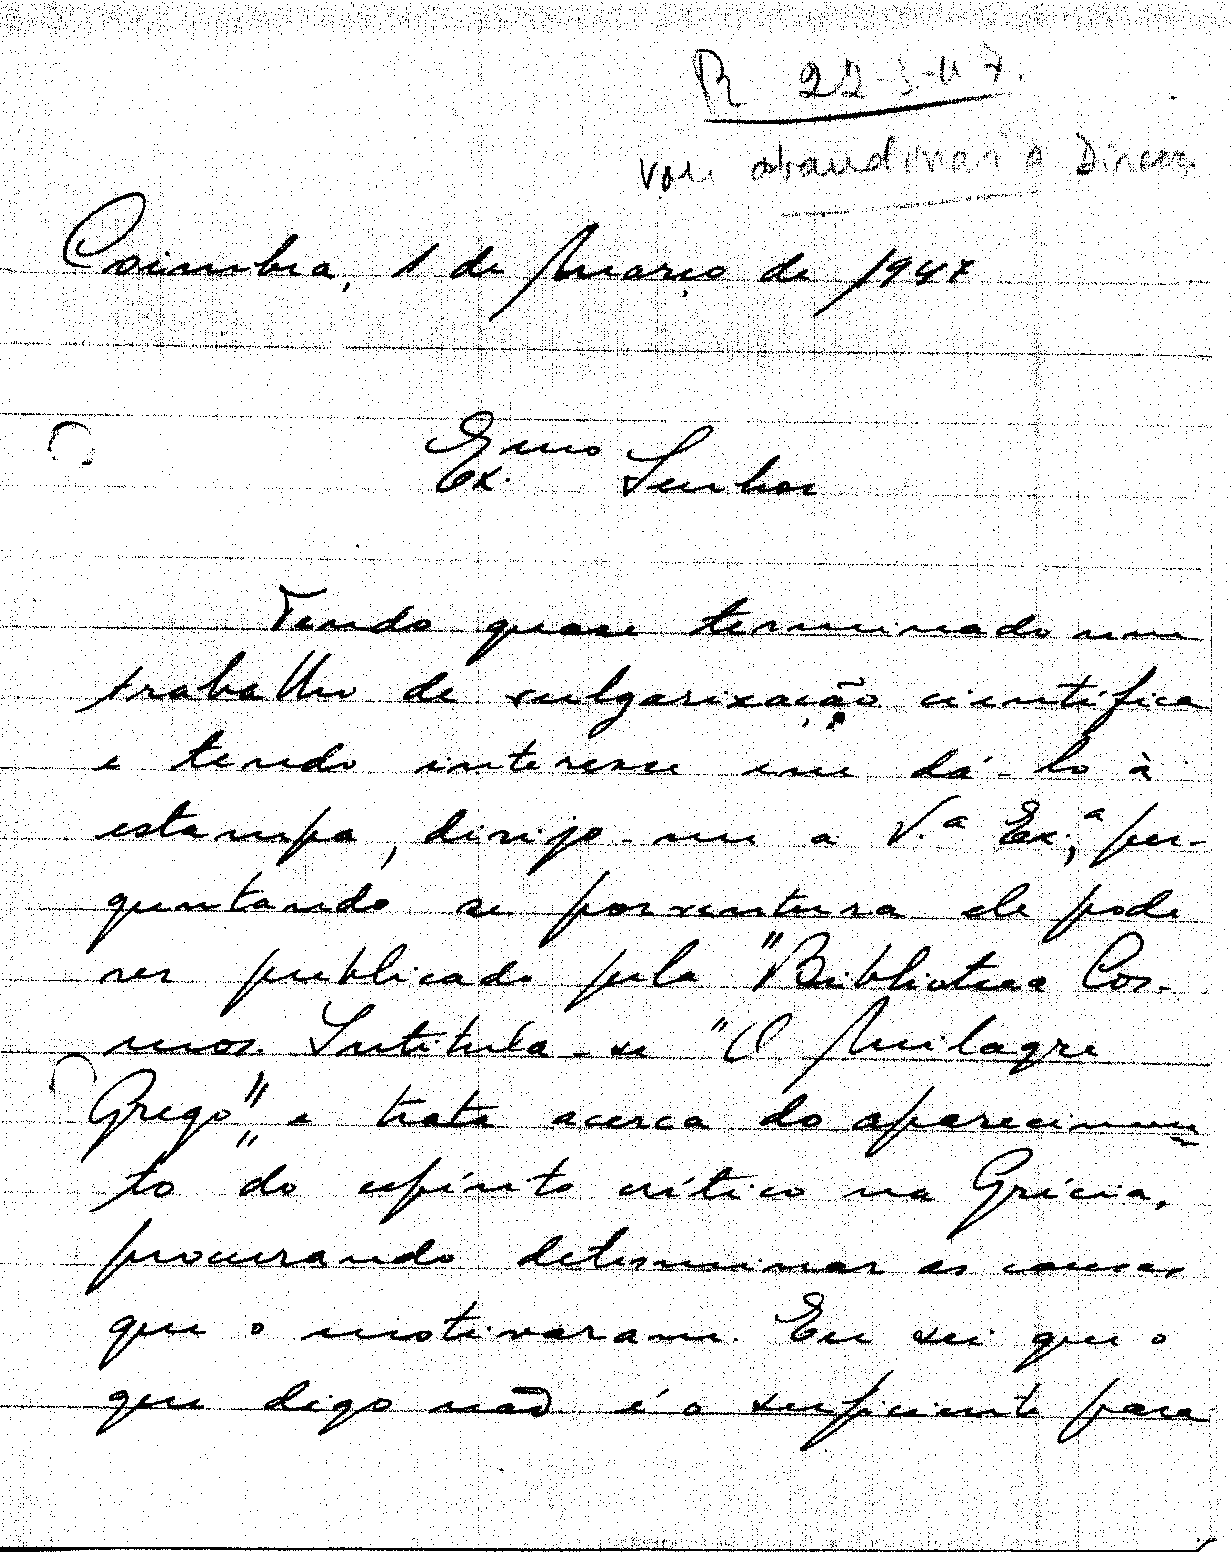 R 22-3-47.
Vou abandonar a Direcç.
Coimbra, 1 de Março de 1947
Ex.mo Senhor
Tendo quase terminado um
trabalho de vulgarização científica
e tendo interesse em dá-lo à
estampa, dirijo-me a V.ª Ex.ª, per-
guntando se porventura ele pode
ser publicado pela "Biblioteca Cos-
mos. Intitula-se "O Milagre
Grego", e trata acerca do aparecimen-
to do espírito crítico na Grécia,
procurando determinar as causas
que o motivaram. Eu sei que o
que digo não é o suficiente para